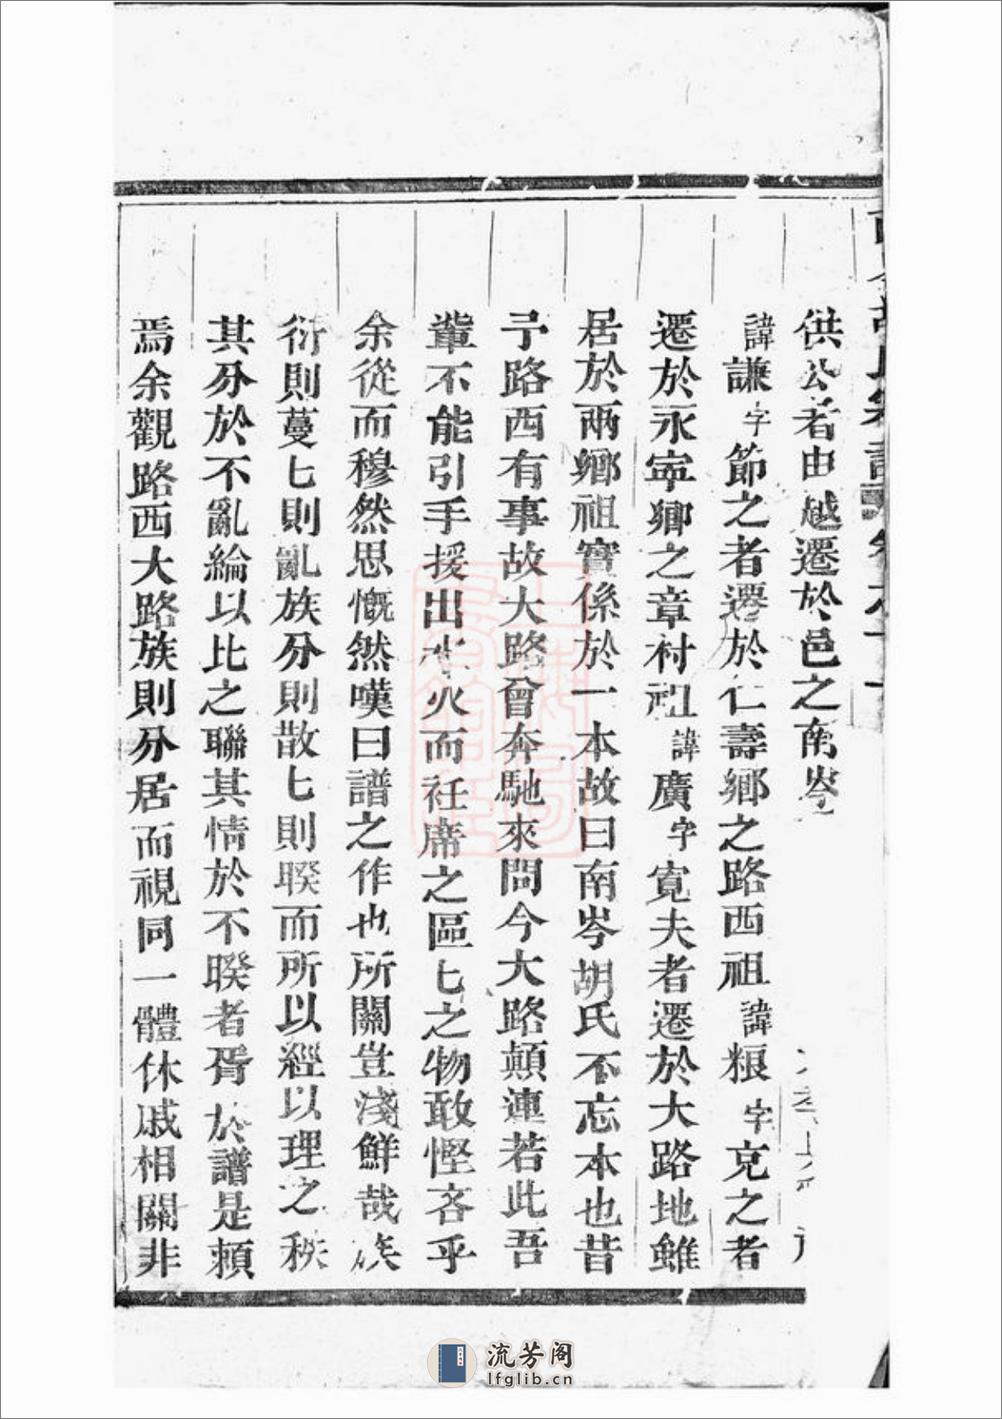 供公者由越遷於邑之南岑
諱謙字節之者遷於仁壽鄉之路西祖諱粮字克之者
遷於永寧鄉之章村祖諱廣字寛夫者遷於大路地雖
居於兩鄉祖實係於一本故曰南岑胡氏不忘本也昔
予路西有事故大路曾奔馳來問今大路顛連若此吾
輩不能引手援出水火而衽席之區匕之物敢慳吝乎
余從而穆然思慨然嘆曰譜之作也所關豈淺鮮哉族
衍則蔓匕則亂族分則散匕則睽而所以經以理之秩
其分於不亂綸以比之聯其情於不睽者胥於譜是賴
焉余觀路西大路族則分居而視同一體休戚相關非
流芳阁
lfglib.cn